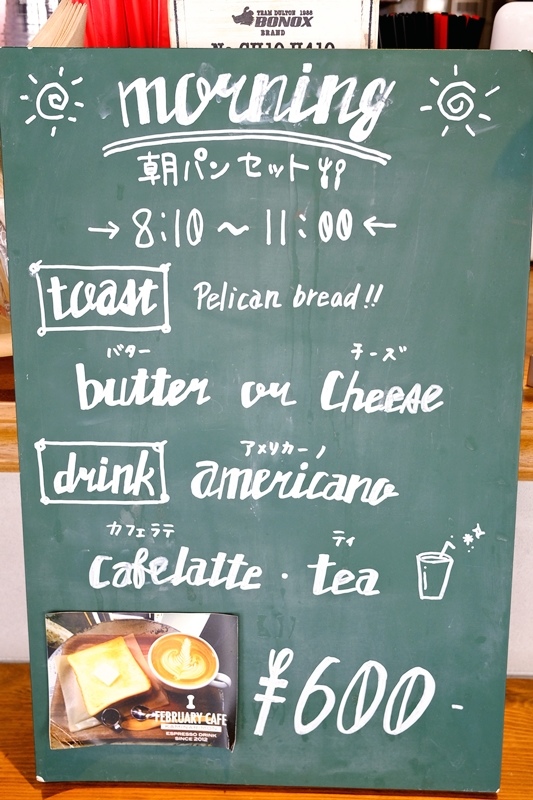 TEAM DULTON 1988
BONOX
BRAND
morning
朝パンセット
→ 8:10 ~ 11:00 ←
toast Pelican bread!!
バター チーズ
butter or Cheese
アメリカーノ
drink americano
カフェラテ ティ
cafelatte · tea
¥600-
FEBRUARY CAFE
ESPRESSO DRINK
SINCE 2012